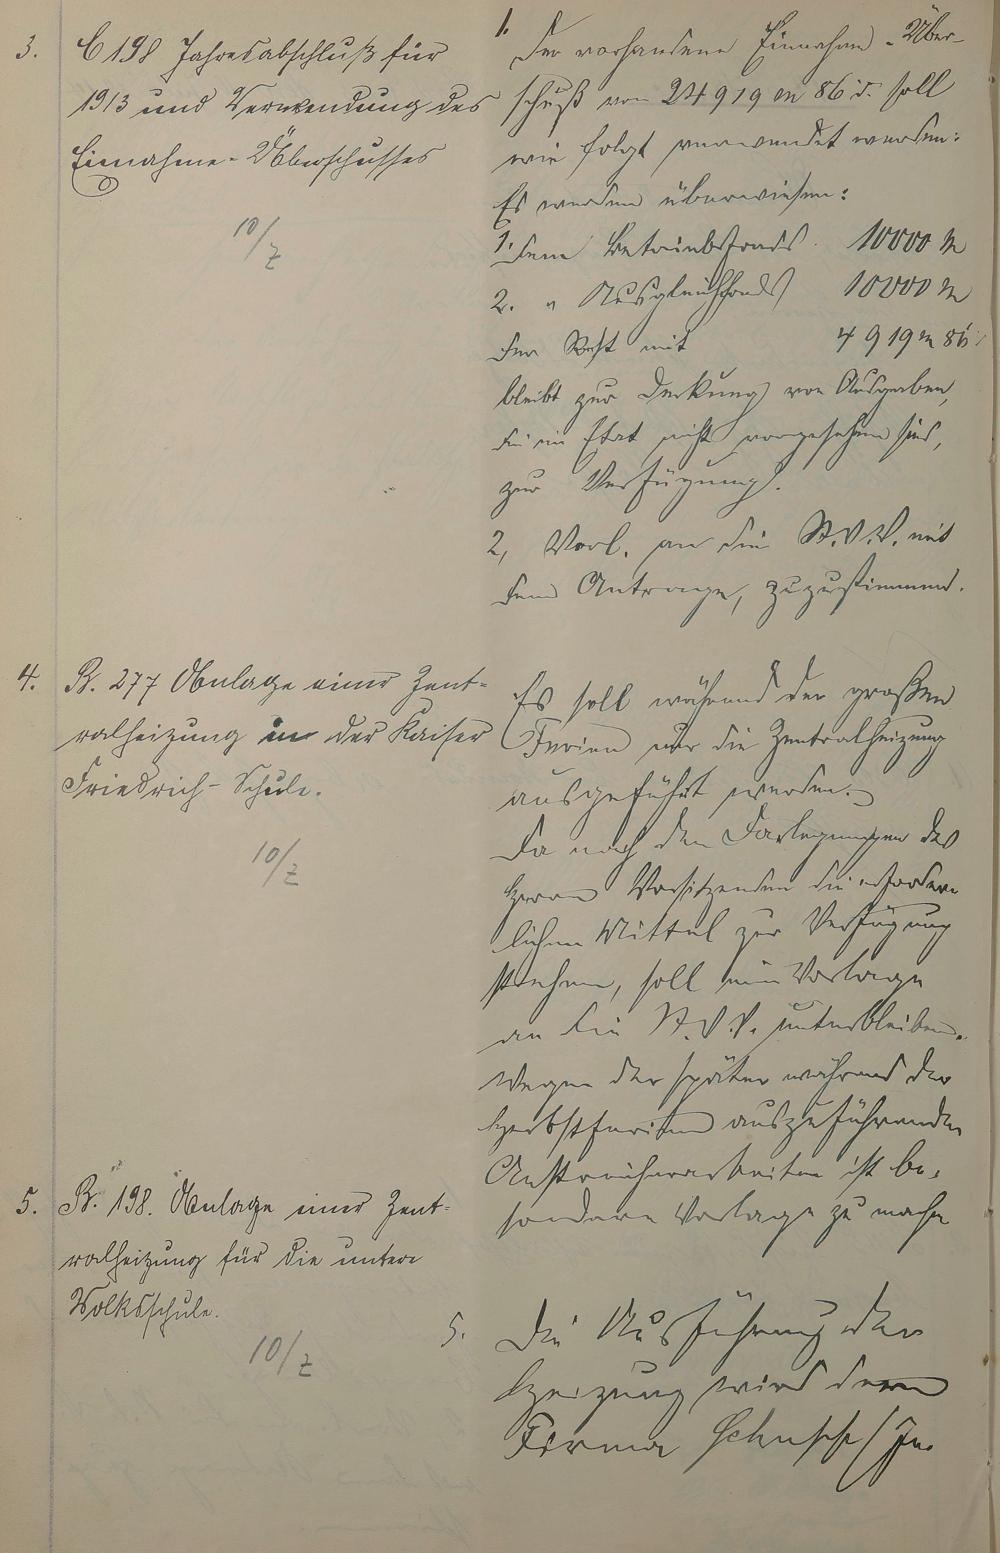 3. C 198 Jahresabschluß für
1913 und Verwendung des
Einnahme-Überschusses
10/Z
1. Der vorhandene Einnahme-Über-
schuß von 24919 M 86 d. soll
wie folgt verwendet werden:
Es werden überwiesen:
1. dem Betriebsfonds 10000 M
2. " Ausgleichsfonds 10000 M
Der Rest mit 4919 M 86
bleibt zur Deckung von Ausgaben,
die im Etat nicht vorgesehen sind,
zur Verfügung.
2, Vorl. an die St.V.V. mit
dem Antrage, zuzustimmen.
4. B. 277 Anlage einer Zent-
ralheizung in der Kaiser
Friedrich-Schule.
10/Z
Es soll während der großen
Ferien nur die Zentralheizung
ausgeführt werden.
Da nach den Darlegungen des
Herrn Vorsitzenden die erforder-
lichen Mittel zur Verfügung
stehen, soll eine Vorlage
an die St.V.V. unterbleiben.
Wegen der später während der
Herbstferien auszuführenden
Anstreicherarbeiten ist be-
sondere Vorlage zu machen
5. B. 198. Anlage einer Zent-
ralheizung für die untere
Volksschule.
10/Z
5. Die Ausführung der
Heizung wird der
Firma